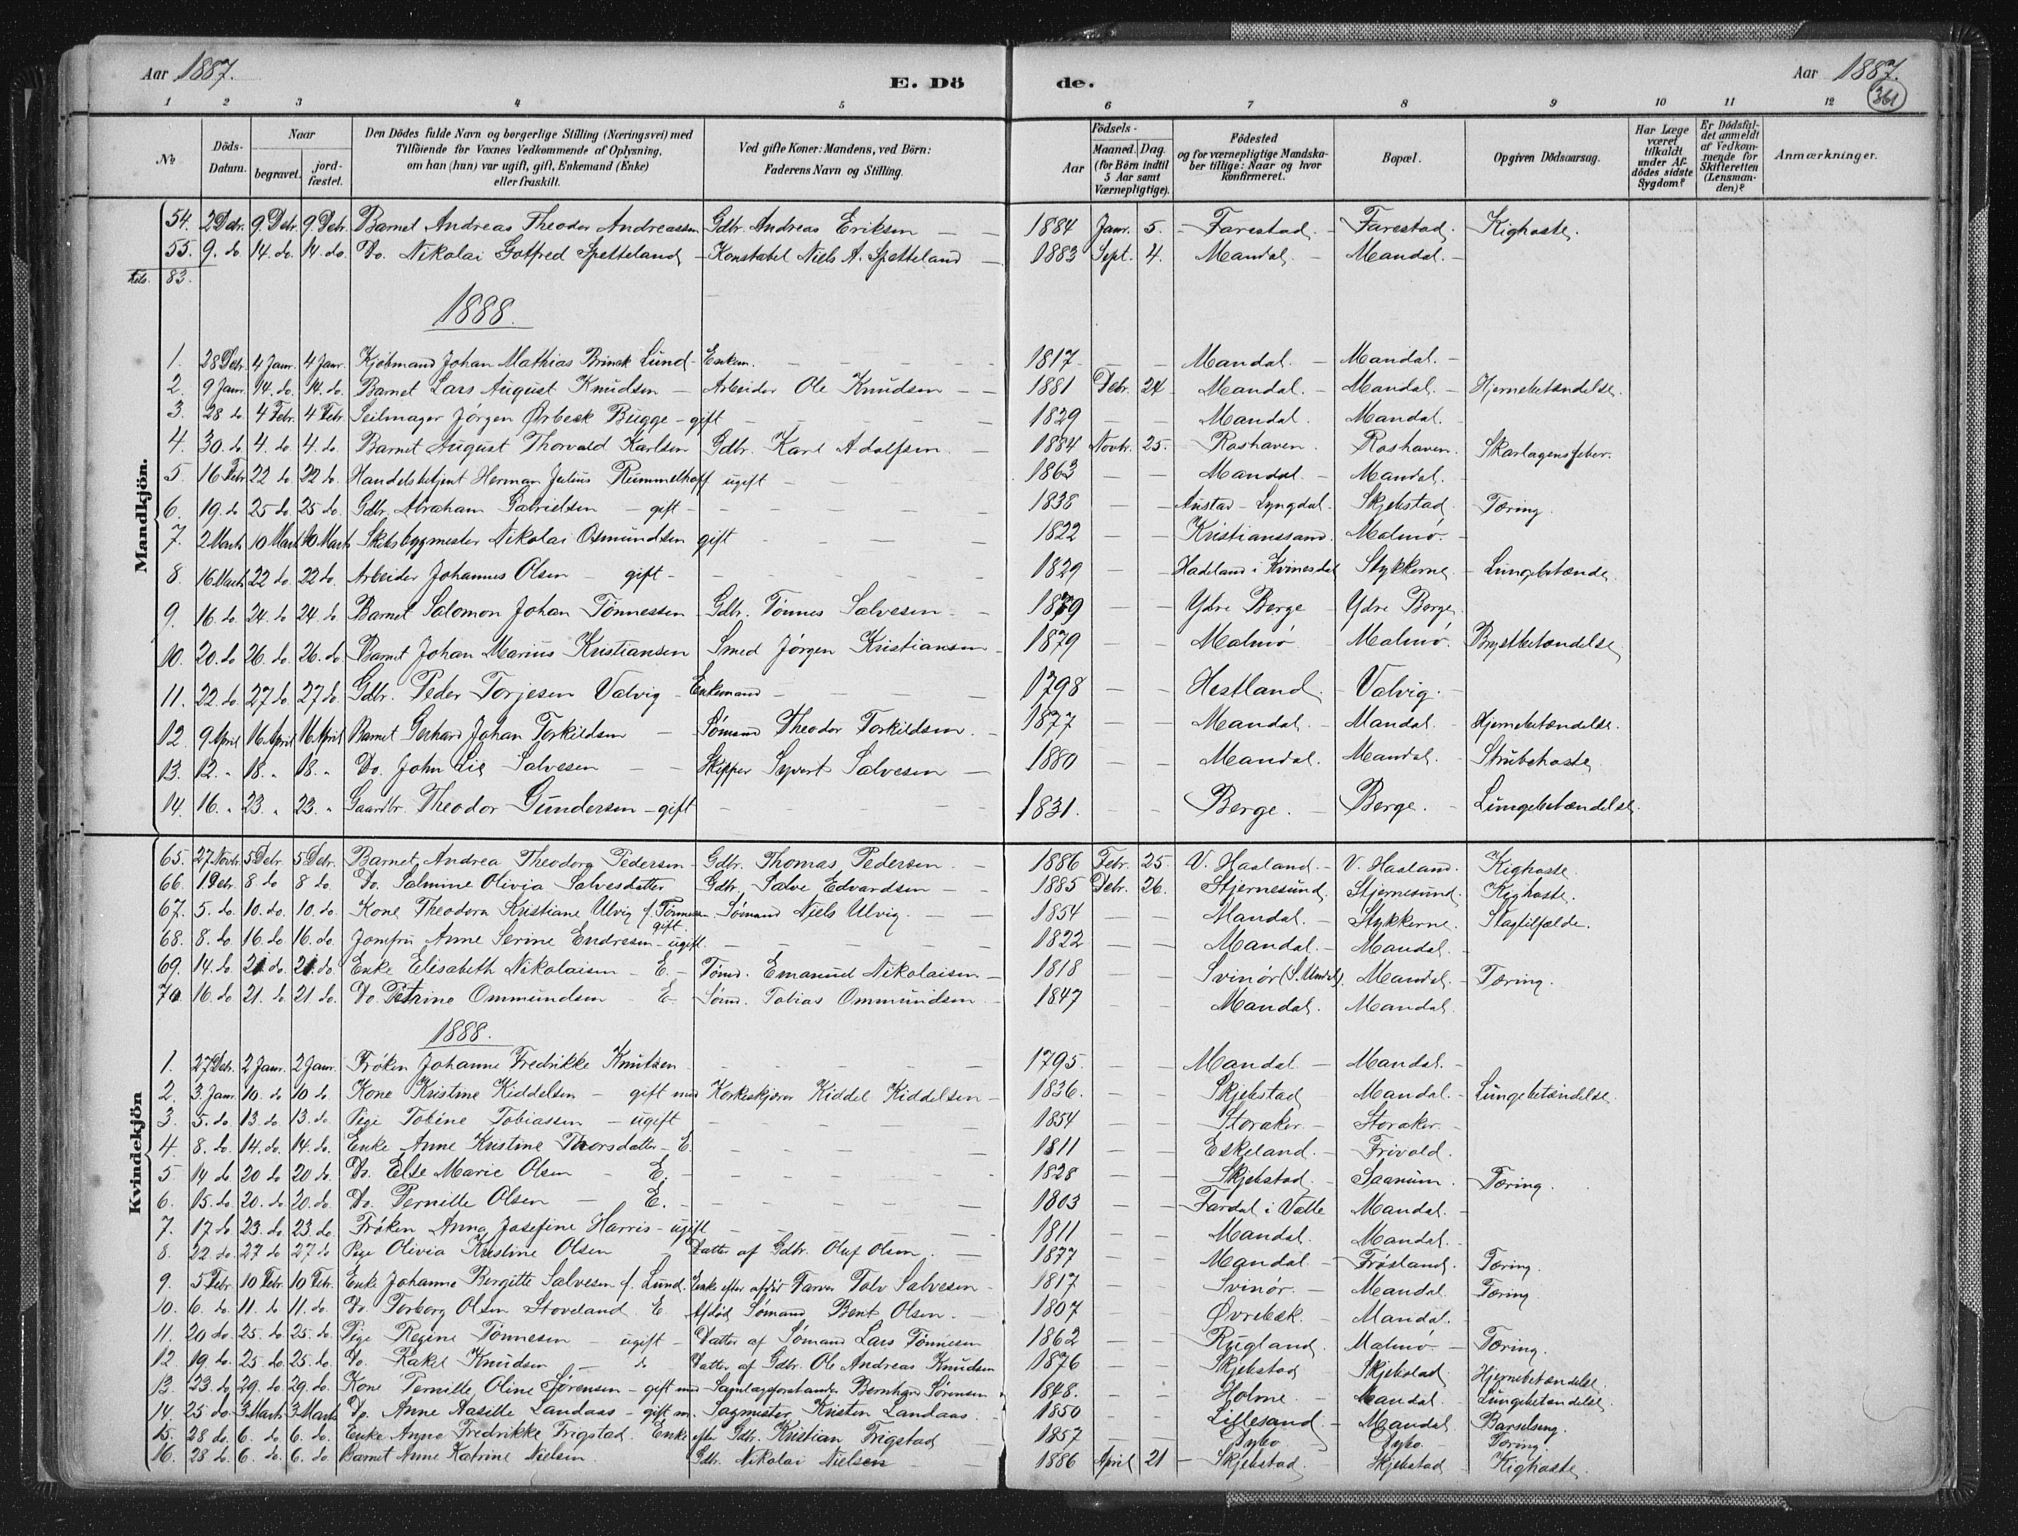 Aar 1887. E. Dö de. Aar 1887.
361
1 2 3 4 5 6 7 8 9 10 11 12
No Döds-Datum. Naar begravet. jord-fæstet. Den Dödes fulde Navn og borgerlige Stilling (Næringsvei) med Tilföiende for Voxnes Vedkommende af Oplysning, om han (hun) var ugift, gift, Enkemand (Enke) eller fraskilt. Ved gifte Koner: Mandens, ved Börn: Faderens Navn og Stilling. Födsels- Aar Maaned. Dag. (for Börn indtil 5 Aar samt Værnepligtige). Födested og for værnepligtige Mandska-ber tillige: Naar og hvor konfirmeret. Bopæl. Opgiven Dödsaarsag. Har Læge været tilkaldt under Af-dödes sidste Sygdom? Er Dödsfal-det anmeldt af Vedkom-mende for Skifteretten (Lensman-den)? Anmærkninger.
Mandkjön.
54. 2 Debr. 9 Debr. 9 Debr. Barnet Andreas Theodor Andreassen Gdbr. Andreas Eriksen 1884 Janr. 5. Farestad. Farestad. Kighoste.
55. 9. do. 14. do. 14. do. Do. Nikolai Gotfred Spetteland Konstabel Niels A. Spetteland 1883 Sept. 4. Mandal. Mandal.
83.
1888.
1. 28 Debr. 4 Janr. 4 Janr. Kjøbmand Johan Mathias Brinck Lund Enkem. 1817 Mandal. Mandal.
2. 9 Janr. 14. do 14. do. Barnet Lars August Knudsen Arbeider Ole Knudsen 1881 Debr. 24 Mandal. Mandal. Hjernebetændelse.
3. 28 do. 4 Febr. 4 Febr. Seilmager Jörgen Ørbeck Bugge - gift 1829 Mandal. Mandal.
4. 30. do 4. do. 4. do. Barnet August Thorvald Karlsen Gdbr. Karl Adolfsen. 1884 Novbr. 25. Roshaven. Roshaven. Skarlagensfeber.
5. 16 Febr. 22 do 22 do. Handelsbetjent Herman Julius Rummelhoff ugift 1863 Mandal. Mandal.
6. 19. do 25 do. 25 do. Gdbr. Abraham Gabrielsen - gift 1838 Austad - Lyngdal. Skjebstad. Tæring.
7. 2 Marts 10 Marts 10 Marts Skibsbygmester Nikolai Osmundsen gift 1822 Kristianssand. Malmö.
8. 16 Marts 22 do. 22 do. Arbeider Johannes Olsen - gift 1829 Hadeland i Kvinesdal Stykkerne. Lungebetænde.
9. 16. do. 24. do. 24. do. Barnet Salomon Johan Tönnessen Gdbr. Tönnes Salvesen 1879 Ydre Berge Ydre Berge.
10. 20. do 26. do. 26. do. Barnet Johan Marius Kristiansen Smed Jørgen Kristiansen 1879 Malmö Malmö. Brystbetændelse
11. 22. do. 27 do. 27 do. Gdbr. Peder Torjesen Valvig Enkemand 1798 Hestland. Valvig.
12. 9 April 16 April 16 April Barnet Gerhard Johan Torkildsen Sømand Theodor Torkildsen. 1877 Mandal. Mandal Hjernebetændelse.
13. 12. " 18. " 18. " Do. John Lie Salvesen Skipper Syvert Salvesen 1880 Mandal. Mandal. Strubehoste.
14. 16. " 23. " 23. " Gaardbr. Theodor Gundersen - gift 1831. Berge. Berge. Lungebetændelse
Kvindekjön
65. 27 Novbr. 5 Debr. 5 Debr. Barnet Andrea Theodora Pedersen Gdbr. Thomas Pedersen 1886 Febr. 25. V. Haaland. V. Haaland. Kighoste.
66. 1 Debr. 8 do 8 do. Do. Salmine Olivia Salvesdatter Gdbr. Salve Edvardsen 1885 Debr. 26. Stjernesund. Stjernesund. Kighoste.
67. 5. do. 10. do. 10. do. Kone Theodora Kristiane Ulvig f. Tönnessen gift. Sømand Niels Ulvig. 1854 Mandal. Stykkerne. Slagtilfælde.
68. 8. do 16. do. 16. do. Jomfru Anne Serine Endresen - ugift. 1822 Mandal. Mandal.
69. 14. do. 21. do. 21. do. Enke Elisabeth Nikolaisen - E. Tømd. Emanuel Nikolaisen 1818 Svinör (S. Undal). Mandal. Tæring.
70 16. do 21. do 21. do. Do. Petrine Ommundsen E. Sømd. Tobias Ommundsen 1847 Mandal. Mandal.
1888.
1. 27 Debr. 2 Janr. 2 Janr. Frøken Johanne Fredrikke Knutzen 1795. Mandal. Mandal.
2. 3 Janr. 10. do 10 do. Kone Kristine Kiddelsen - gift med Korkeskjærer Kiddel Kiddelsen 1836. Skjebstad Mandal. Lungebetændelse
3. 5. do. 13. do. 13. do. Pige Tobine Tobiassen - ugift 1854 Storaker. Storaker.
4. 8. do. 14. do. 14. do. Enke Anne Kristine Thorsdatter - E. 1811 Eskeland. Frivold.
5. 14 do 20 do 20 do. Do. Else Marie Olsen - E. 1828 Skjebstad. Saanum. Tæring.
6. 15. do. 20. do. 20. do. Do. Pernille Olsen - E. 1803 Fardal i Valle Mandal.
7. 17 do 23. do 23. do. Frøken Anna Josefine Harris - ugift 1811 Mandal. Mandal.
8. 22 do. 27 do 27. do. Pige Olivia Kristine Olsen Datter af Gdbr. Oluf Olsen. 1877 Mandal Frøsland. Tæring.
9. 5 Febr. 10 Febr. 10 Febr. Enke Johanne Bergitte Salvesen f. Lund. Enke efter afdød Farver Salvesen 1817 Svinør. Mandal. Tæring
10. 6. do. 11. do 11. do. Do. Torborg Olsen Stoveland. E. Afdød Sømand Bent Olsen. 1807 Øvrebøk. Mandal.
11. 20 do. 25. do. 25. do. Pige Regine Tönnesen - ugift Datter af Sømand Lars Tönnesen 1862 Rugland. Malmö. Tæring.
12. 19. do. 25. do. 25. do. Do. Rakel Knudsen - do Datter af Gdbr. Ole Andreas Knudsen 1876 Skjebstad Skjebstad Hjernebetændelse.
13. 23. do 29. do. 29. do. Kone Pernille Oline Sørensen - gift med Bernhard Sørensen 1848. Holme. Mandal Lungebetændelse.
14. 25 do 3 Marts 3 Marts Do. Anne Aasille Landaas - gift m. Sagmester Kristen Landaas. 1850 Lillesand. Mandal. Barselseng.
15. 28 do. 6. do. 6. do. Enke Anne Fredrikke Frigstad. Enke efter Gdbr. Kristian Frigstad 1857 Dybo Dybo. Tæring.
16. 28 do 6. do 6. do. Barnet Anne Katrine Nielsen. Gdbr. Nikolai Nielsen 1886 April 21 Skjebstad. Skjebstad Kighoste